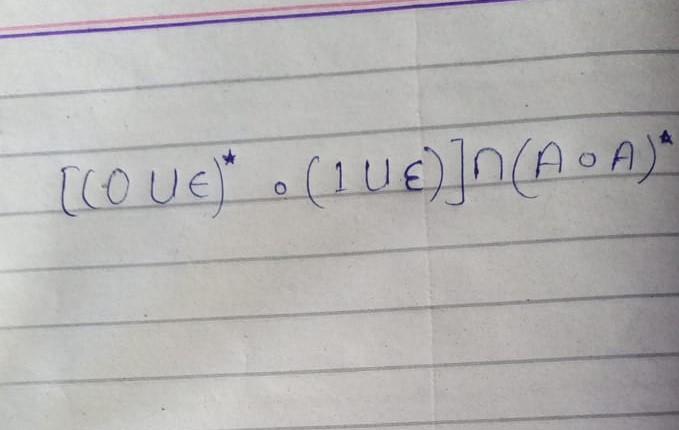 [(0 ∪ ϵ)* ∘ (1 ∪ ε)] ∩ (A ∘ A)*